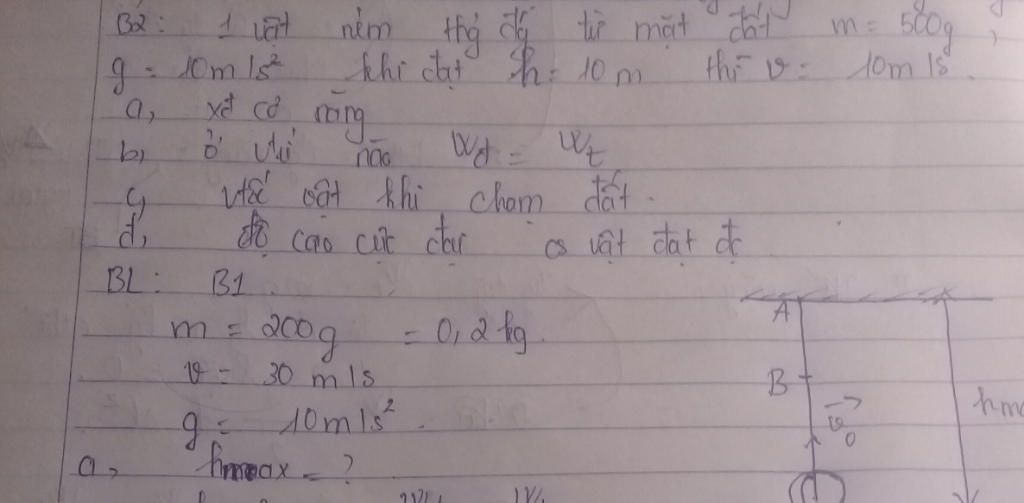 B2: 1 vật ném thg đg từ mặt đất m = 500g,
g = 10m/s² khi đạt h = 10m thì v = 10m/s.
a, xđ cơ năng
b, ở vtrí nào Wđ = Wt
c, vtốc vật khi chạm đất.
d, độ cao cực đại vật đạt đc
BL: B1.
m = 200g = 0,2kg.
v = 30m/s
g = 10m/s².
a, hmax = ?
A
B
v₀